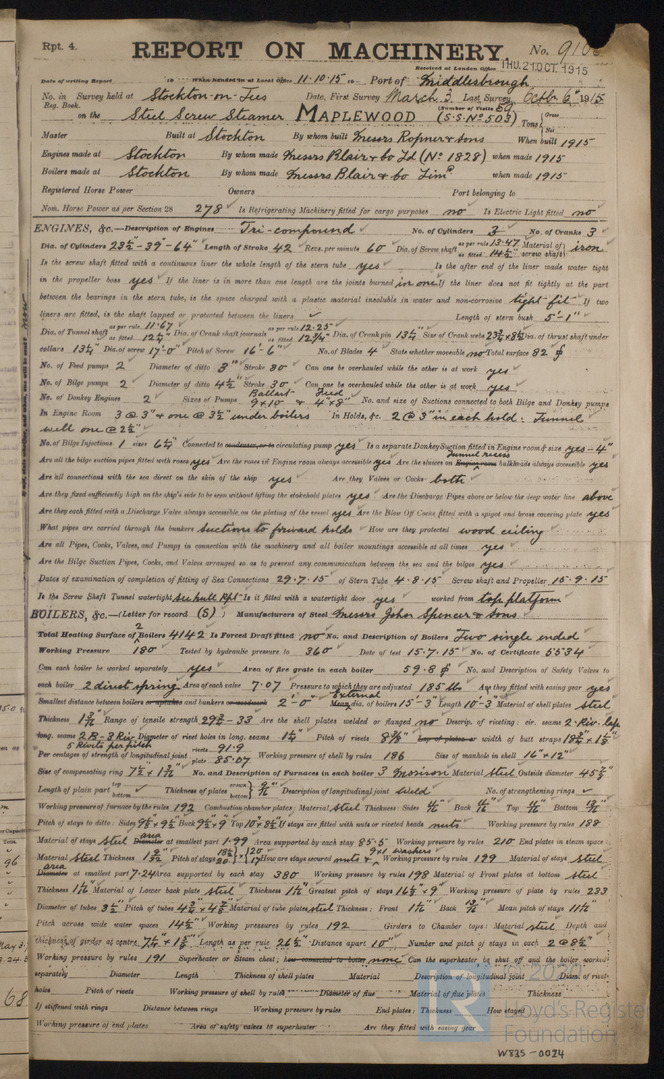 Rpt. 4.
REPORT ON MACHINERY
No. 910
Received at London Office THU. 21 OCT. 1915
Date of writing Report 19 When handed in at Local Office 11-10-15 Port of Middlesbrough
No. in Survey held at Stockton-on-Tees Date, First Survey March 3 Last Survey Octbr 6th 1915
Reg. Book. (Number of Visits 59)
on the Steel Screw Steamer MAPLEWOOD (S.S. No 503) Tons Gross Net
Master Built at Stockton By whom built Messrs Ropner & Sons When built 1915
Engines made at Stockton By whom made Messrs Blair & Co Ld (No 1828) when made 1915
Boilers made at Stockton By whom made Messrs Blair & Co Limd when made 1915
Registered Horse Power Owners Port belonging to
Nom. Horse Power as per Section 28 278 Is Refrigerating Machinery fitted for cargo purposes no Is Electric Light fitted no
ENGINES, &c.—Description of Engines Tri-compound No. of Cylinders 3 No. of Cranks 3
Dia. of Cylinders 23½"-39"-64" Length of Stroke 42 Revs. per minute 60 Dia. of Screw shaft as per rule 13.47 as fitted 14½" Material of screw shaft iron
Is the screw shaft fitted with a continuous liner the whole length of the stern tube yes Is the after end of the liner made water tight
in the propeller boss yes If the liner is in more than one length are the joints burned in one If the liner does not fit tightly at the part
between the bearings in the stern tube, is the space charged with a plastic material insoluble in water and non-corrosive tight-fit If two
liners are fitted, is the shaft lapped or protected between the liners ✓ Length of stern bush 5'-1"
Dia. of Tunnel shaft as per rule 11.67 as fitted 12½" Dia. of Crank shaft journals as per rule 12.25" as fitted 12¾" Dia. of Crank pin 13¼" Size of Crank webs Dia. of thrust shaft under
collars 13¼" Dia. of screw 17'-0" Pitch of Screw 16'-6" No. of Blades 4 State whether moveable no Total surface 82
No. of Feed pumps 2 Diameter of ditto 3" Stroke 30 Can one be overhauled while the other is at work yes
No. of Bilge pumps 2 Diameter of ditto 4½" Stroke 30 Can one be overhauled while the other is at work yes
No. of Donkey Engines 2 Sizes of Pumps Ballast 9×10" & Feed 4"×8" No. and size of Suctions connected to both Bilge and Donkey pumps
In Engine Room 3 @ 3" & one @ 3½" under boilers In Holds, &c. 2 @ 3" in each hold. Tunnel
well one @ 2½"
No. of Bilge Injections 1 sizes 6½" Connected to condenser, or to circulating pump yes Is a separate Donkey Suction fitted in Engine room & size yes - 4"
Are all the bilge suction pipes fitted with roses yes Are the roses in Engine room always accessible yes Are the sluices on Engine room Tunnel recess bulkheads always accessible yes
Are all connections with the sea direct on the skin of the ship yes Are they Valves or Cocks both
Are they fixed sufficiently high on the ship's side to be seen without lifting the stokehold plates yes Are the Discharge Pipes above or below the deep water line above
Are they each fitted with a Discharge Valve always accessible on the plating of the vessel yes Are the Blow Off Cocks fitted with a spigot and brass covering plate yes
What pipes are carried through the bunkers suctions to forward holds How are they protected wood ceiling
Are all Pipes, Cocks, Valves, and Pumps in connection with the machinery and all boiler mountings accessible at all times yes
Are the Bilge Suction Pipes, Cocks, and Valves arranged so as to prevent any communication between the sea and the bilges yes
Dates of examination of completion of fitting of Sea Connections 29.7.15 of Stern Tube 4.8.15 Screw shaft and Propeller 15.9.15
Is the Screw Shaft Tunnel watertight see hull Rpt Is it fitted with a watertight door yes worked from top platform
BOILERS, &c.—(Letter for record (S)) Manufacturers of Steel Messrs John Spencer & Sons
Total Heating Surface of 2 Boilers 4142 Is Forced Draft fitted no No. and Description of Boilers Two single ended
Working Pressure 180 Tested by hydraulic pressure to 360 Date of test 15.7.15 No. of Certificate 5534
Can each boiler be worked separately yes Area of fire grate in each boiler 59.8 No. and Description of Safety Valves to
each boiler 2 direct spring Area of each valve 7.07 Pressure to which they are adjusted 185 lbs Are they fitted with easing gear yes
Smallest distance between boilers or uptakes and bunkers or woodwork 2'-0" Mean Internal dia. of boilers 15'-3" Length 10'-3" Material of shell plates steel
Thickness Range of tensile strength Are the shell plates welded or flanged no Descrip. of riveting: cir. seams 2-Riv. lap
long. seams 2B-3Riv. Diameter of rivet holes in long. seams 1¼" Pitch of rivets Lap of plates or width of butt straps
5 Rivets per pitch
Per centages of strength of longitudinal joint rivets 91.9 plate 85.07 Working pressure of shell by rules 186 Size of manhole in shell 16"×12"
Size of compensating ring No. and Description of Furnaces in each boiler 3 Morison Material steel Outside diameter
Length of plain part top bottom Thickness of plates crown bottom Description of longitudinal joint weld No. of strengthening rings
Working pressure of furnace by the rules 192 Combustion chamber plates: Material steel Thickness: Sides Back Top Bottom
Pitch of stays to ditto: Sides Back Top If stays are fitted with nuts or riveted heads nuts Working pressure by rules 188
Material of stays steel Diameter area at smallest part 1.99 Area supported by each stay 85.5 Working pressure by rules 210 End plates in steam space
Material steel Thickness Pitch of stays How are stays secured nuts & washers Working pressure by rules 199 Material of stays steel
Diameter area at smallest part 7.24 Area supported by each stay 380 Working pressure by rules 198 Material of Front plates at bottom steel
Thickness Material of Lower back plate steel Thickness Greatest pitch of stays Working pressure of plate by rules 233
Diameter of tubes 3½" Pitch of tubes Material of tube plates steel Thickness: Front Back Mean pitch of stays 11½"
Pitch across wide water spaces 14½" Working pressures by rules 192 Girders to Chamber tops: Material steel Depth and
thickness of girder at centre Length as per rule Distance apart 10" Number and pitch of stays in each 2 @ 8½"
Working pressure by rules 191 Superheater or Steam chest; how connected to boiler none Can the superheater be shut off and the boiler worked
separately Diameter Length Thickness of shell plates Material Description of longitudinal joint Diam. of rivet
holes Pitch of rivets Working pressure of shell by rules Diameter of flue Material of flue plates Thickness
If stiffened with rings Distance between rings Working pressure by rules End plates: Thickness How stayed
Working pressure of end plates Area of safety valves to superheater Are they fitted with easing gear
Lloyd's Register
Foundation
W835-0024